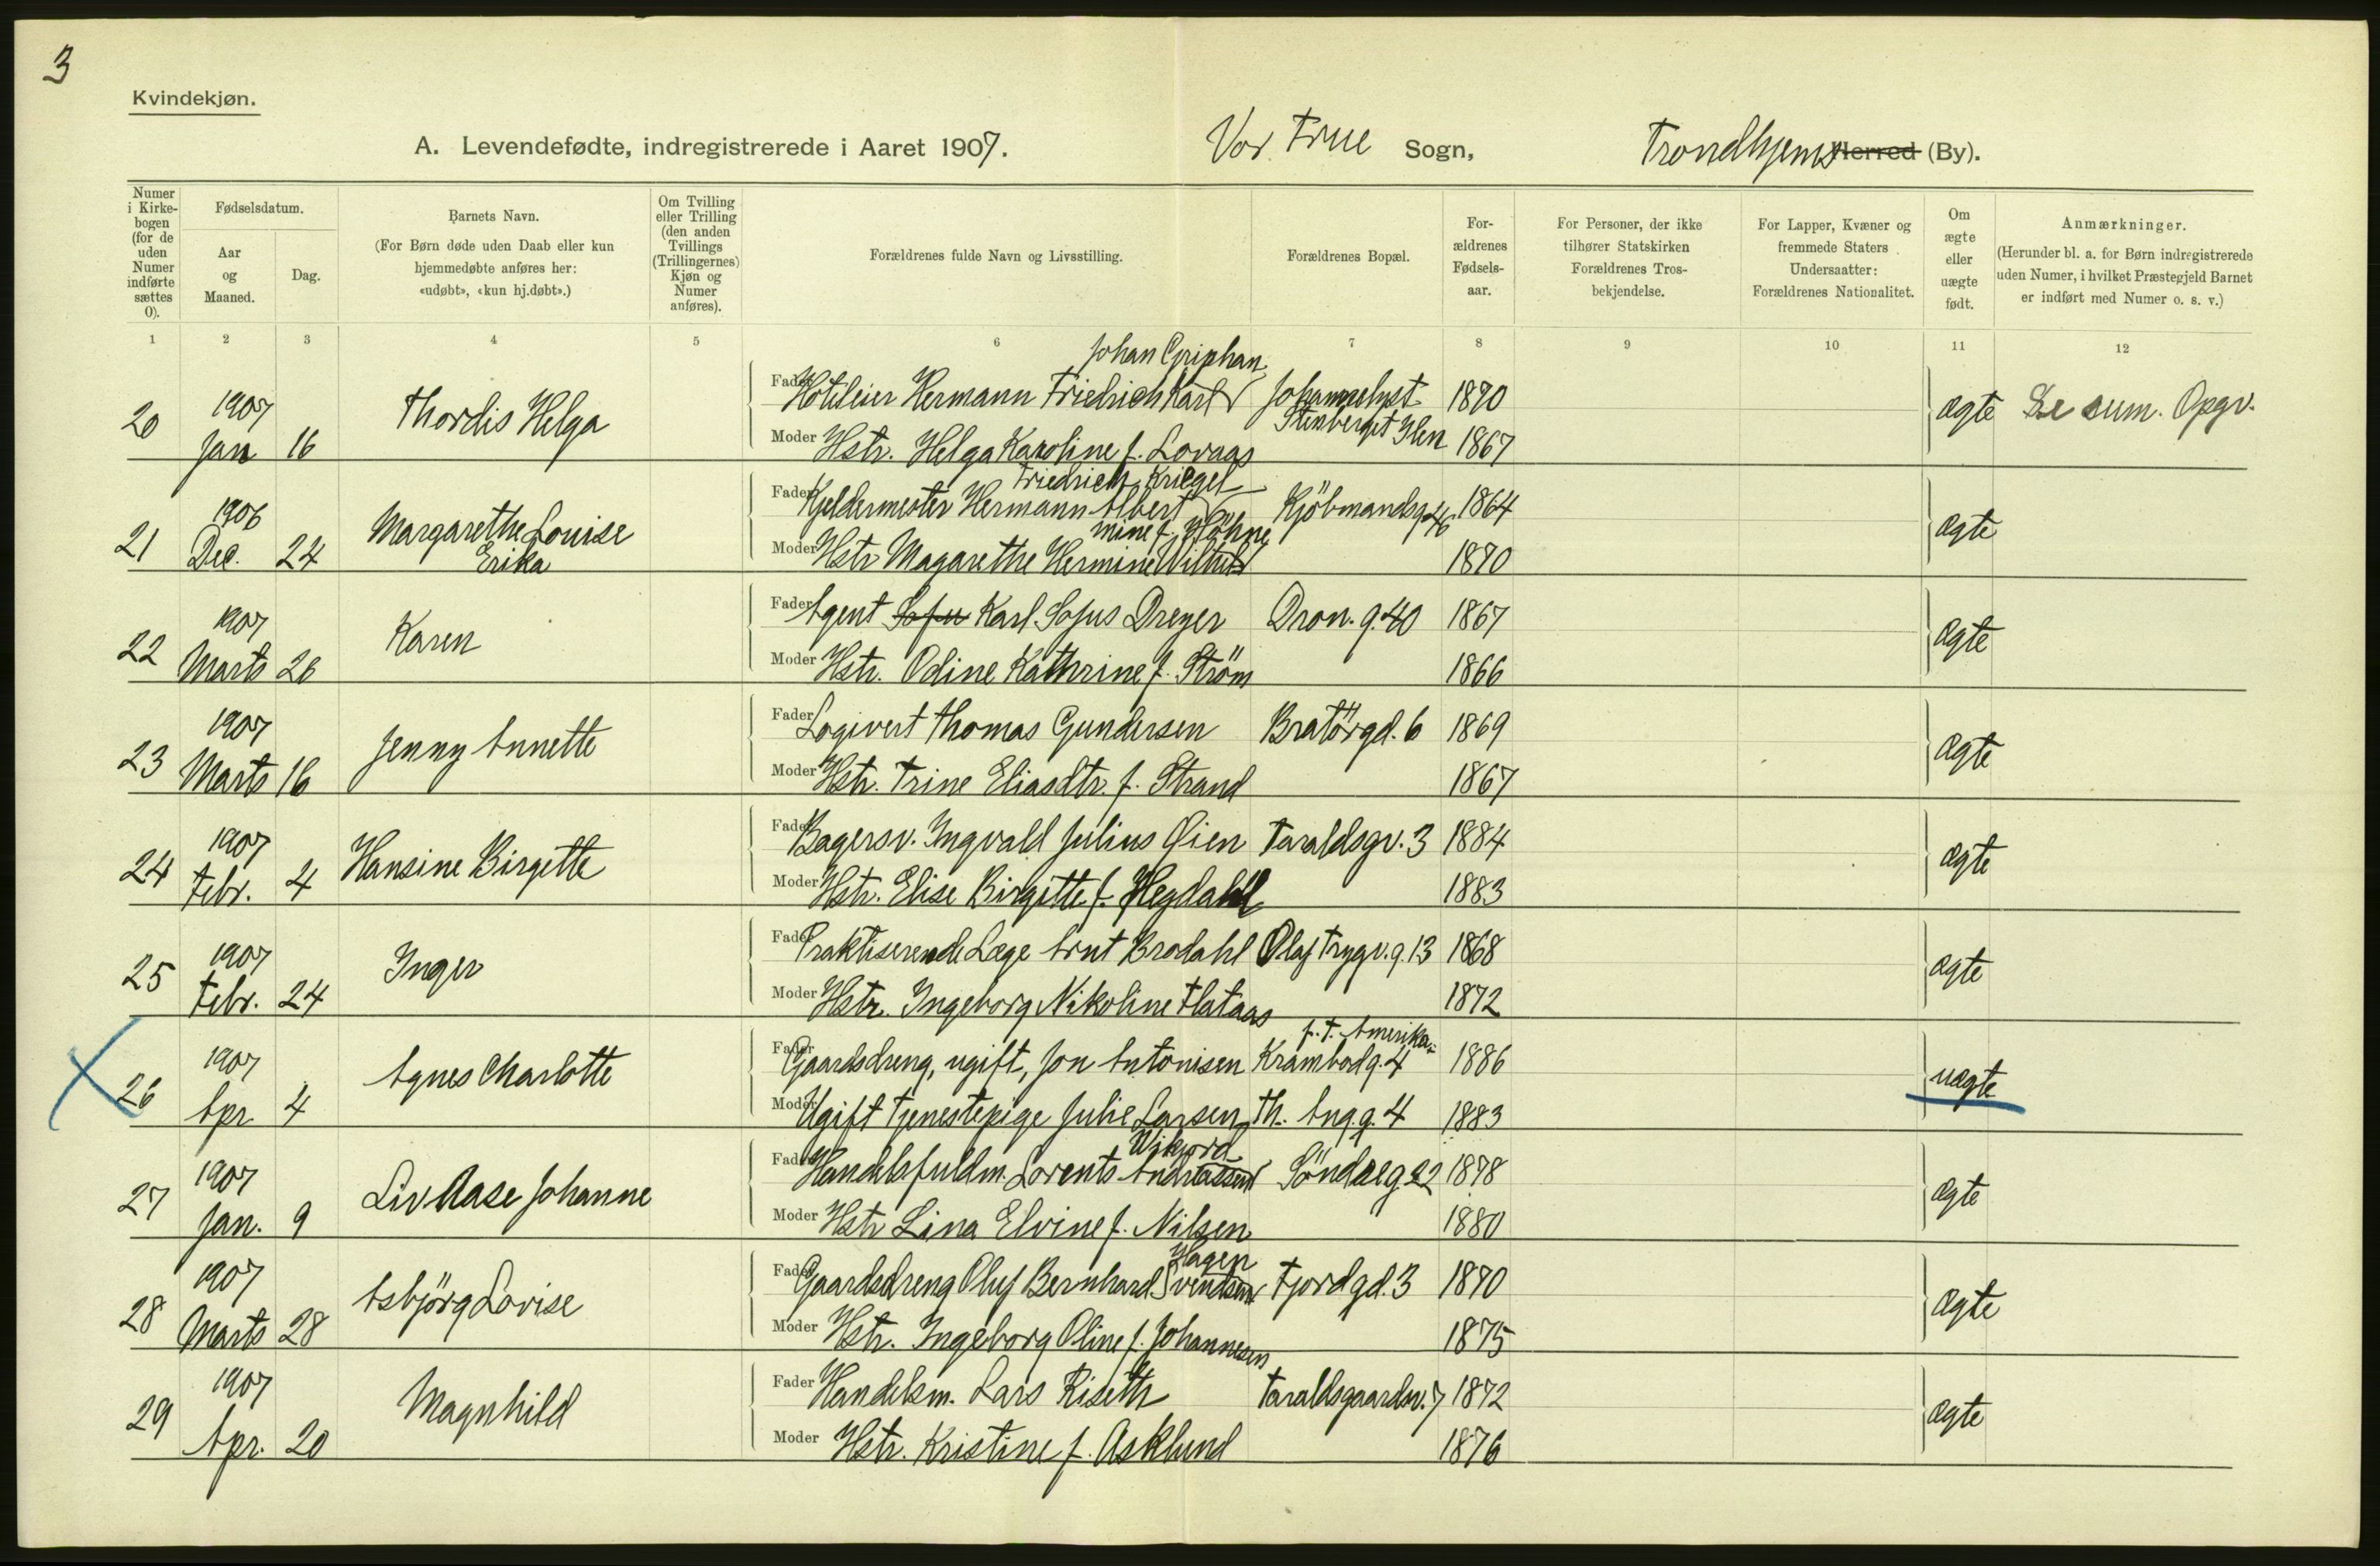 3
Kvindekjøn.
A. Levendefødte, indregistrerede i Aaret 1907. Vor Frue Sogn, Trondhjems Herred (By).
Numer i Kirkebogen (for de uden Numer indførte sættes 0).
Fødselsdatum.
Aar og Maaned.
Dag.
Barnets Navn.
(For Børn døde uden Daab eller kun hjemmedøbte anføres her: «udøbt», «kun hj.døbt».)
Om Tvilling eller Trilling (den anden Tvillings (Trillingernes) Kjøn og Numer anføres).
Forældrenes fulde Navn og Livsstilling.
Forældrenes Bopæl.
Forældrenes Fødselsaar.
For Personer, der ikke tilhører Statskirken Forældrenes Trosbekjendelse.
For Lapper, Kvæner og fremmede Staters Undersaatter: Forældrenes Nationalitet.
Om ægte eller uægte født.
Anmærkninger.
(Herunder bl. a. for Børn indregistrerede uden Numer, i hvilket Præstegjeld Barnet er indført med Numer o. s. v.)
1 2 3 4 5 6 7 8 9 10 11 12
20 1907 Jan 16 Thordis Helga
Fader Hoteleier Hermann Friedrich Karl Johan 1870
Moder Hstr. Helga Karoline f. Lovaas Stenberget Ilen 1867
ægte Se sum. Opgv.
21 1906 Dec. 24 Margarethe Louise Erika
Fader Kjeldermester Hermann Albert Friedrich Kriegel Kjöbmandsg. 46 1864
Moder Hstr Magarethe Hermine Wilhelmine f. Höhne 1870
ægte
22 1907 Marts 26 Karen
Fader Agent Sofu Karl Sofus Dreyer Dron. g. 40 1867
Moder Hstr. Odine Kathrine f. Ström 1866
ægte
23 1907 Marts 16 Jenny Annette
Fader Logivert Thomas Gundersen Bratörgd. 6 1869
Moder Hstr. Trine Eliasdtr. f. Strand 1867
ægte
24 1907 Febr. 4 Hansine Birgitte
Fader Bagersv. Ingvald Julius Øien Taraldsgv. 3 1884
Moder Hstr. Elise Birgitte f. Hegdahl 1883
ægte
25 1907 Febr. 24 Inger
Fader Praktiserende Læge Arnt Brodahl Olaf Trygv. g. 13 1868
Moder Hstr. Ingeborg Nikoline Flataas 1872
ægte
26 1907 Apr. 4 Agnes Charlotte
Fader Gaardsdreng, ugift, Jon Antonisen Krambodg. 4 f. T. Amerika 1886
Moder Ugift Tjenestepige Julie Larsen Th. Ang. g. 4 1883
uægte
27 1907 Jan. 9 Liv Aase Johanne
Fader Handelsfuldm. Lorents Andreassen Söndreg 22 1878
Moder Hstr Lina Elvine f. Nilsen 1880
ægte
28 1907 Marts 28 Asbjörg Lovise
Fader Gaardsdreng Oluf Bernhard Svendsen Hagen Fjordgd. 3 1870
Moder Hstr. Ingeborg Oline f. Johannesen 1875
ægte
29 1907 Apr. 20 Magnhild
Fader Handelsm. Lars Riseth Taraldsgaardsv. 7 1872
Moder Hstr. Kristine f. Asklund 1876
ægte